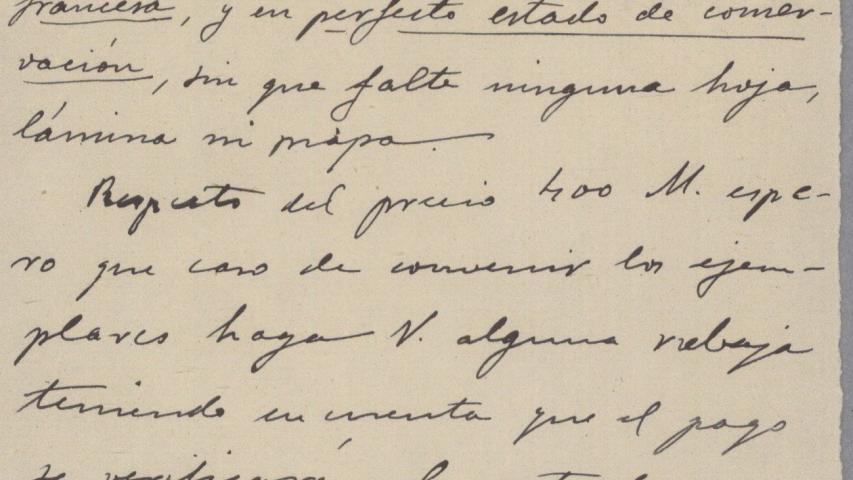 francesa, y en perfecto estado de conser-
vación, sin que falte ninguna hoja,
lámina ni mapa.
Respecto del precio 400 M. espe-
ro que caso de convenir los ejem-
plares haga V. alguna rebaja
teniendo en cuenta que el pago
se verificará